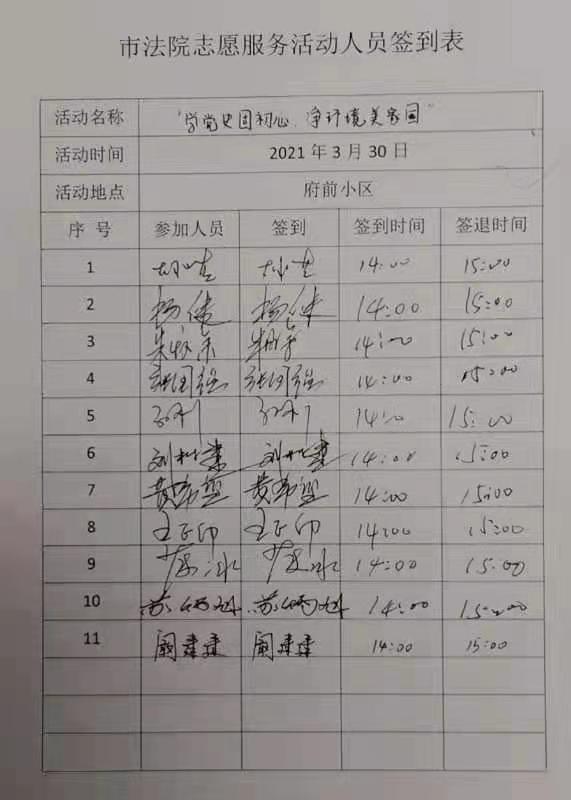 市法院志愿服务活动人员签到表
活动名称 "学党史固初心、净环境美家园"
活动时间 2021年3月30日
活动地点 府前小区
序 号 参加人员 签到 签到时间 签退时间
1 14:00 15:00
2 杨健 杨健 14:00 15:00
3 14:00 15:00
4 张国强 张国强 14:00 15:00
5 孙刚 孙刚 14:00 15:00
6 14:00 15:00
7 黄希玺 黄希玺 14:00 15:00
8 王正印 王正印 14:00 15:00
9 14:00 15:00
10 14:00 15:00
11 阚建建 阚建建 14:00 15:00